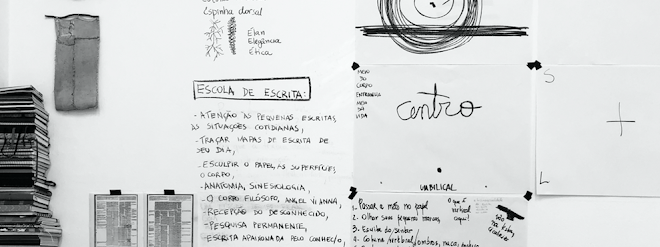 Espinha dorsal
Elan
Elegância
Ética
ESCOLA DE ESCRITA:
- ATENÇÃO ÀS PEQUENAS ESCRITAS,
ÀS SITUAÇÕES COTIDIANAS,
- TRAÇAR MAPAS DE ESCRITA DE
SEU DIA,
- ESCULPIR O PAPEL, AS SUPERFÍCIES,
O CORPO,
- ANATOMIA, SINESIOLOGIA,
- O CORPO FILÓSOFO, ANGEL VIANNA,
- RECEPÇÃO DO DESCONHECIDO,
- PESQUISA PERMANENTE,
- ESCRITA APAIXONADA PELO
MEIO
DO
CORPO
ENTRANHA
MEIO
DA
VIDA
centro
UMBILICAL
1. Passar a mão no papel
2. Olhar suas pequenas marcas
3. Escolha do
4. Coluna vertical, ombros,
O que é
vertical
aqui?
S
L